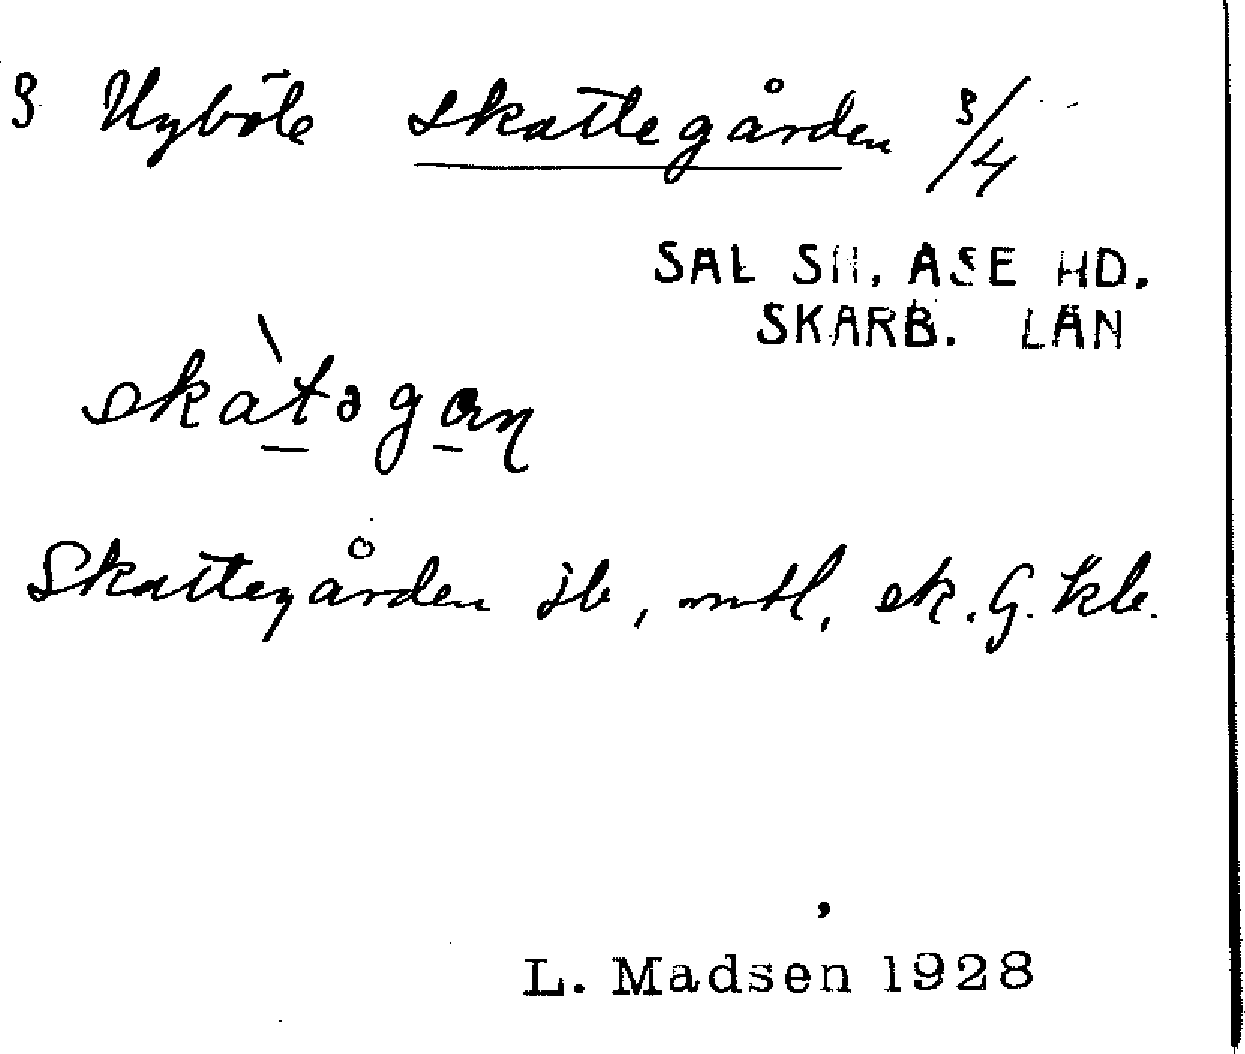 3 Nyböle Skattegården 3/4
SAL SN, ÅSE HD.
SKARB. LÄN
skàtəgan
Skattegården jb, mtl, ek. G. kb.
L. Madsen 1928